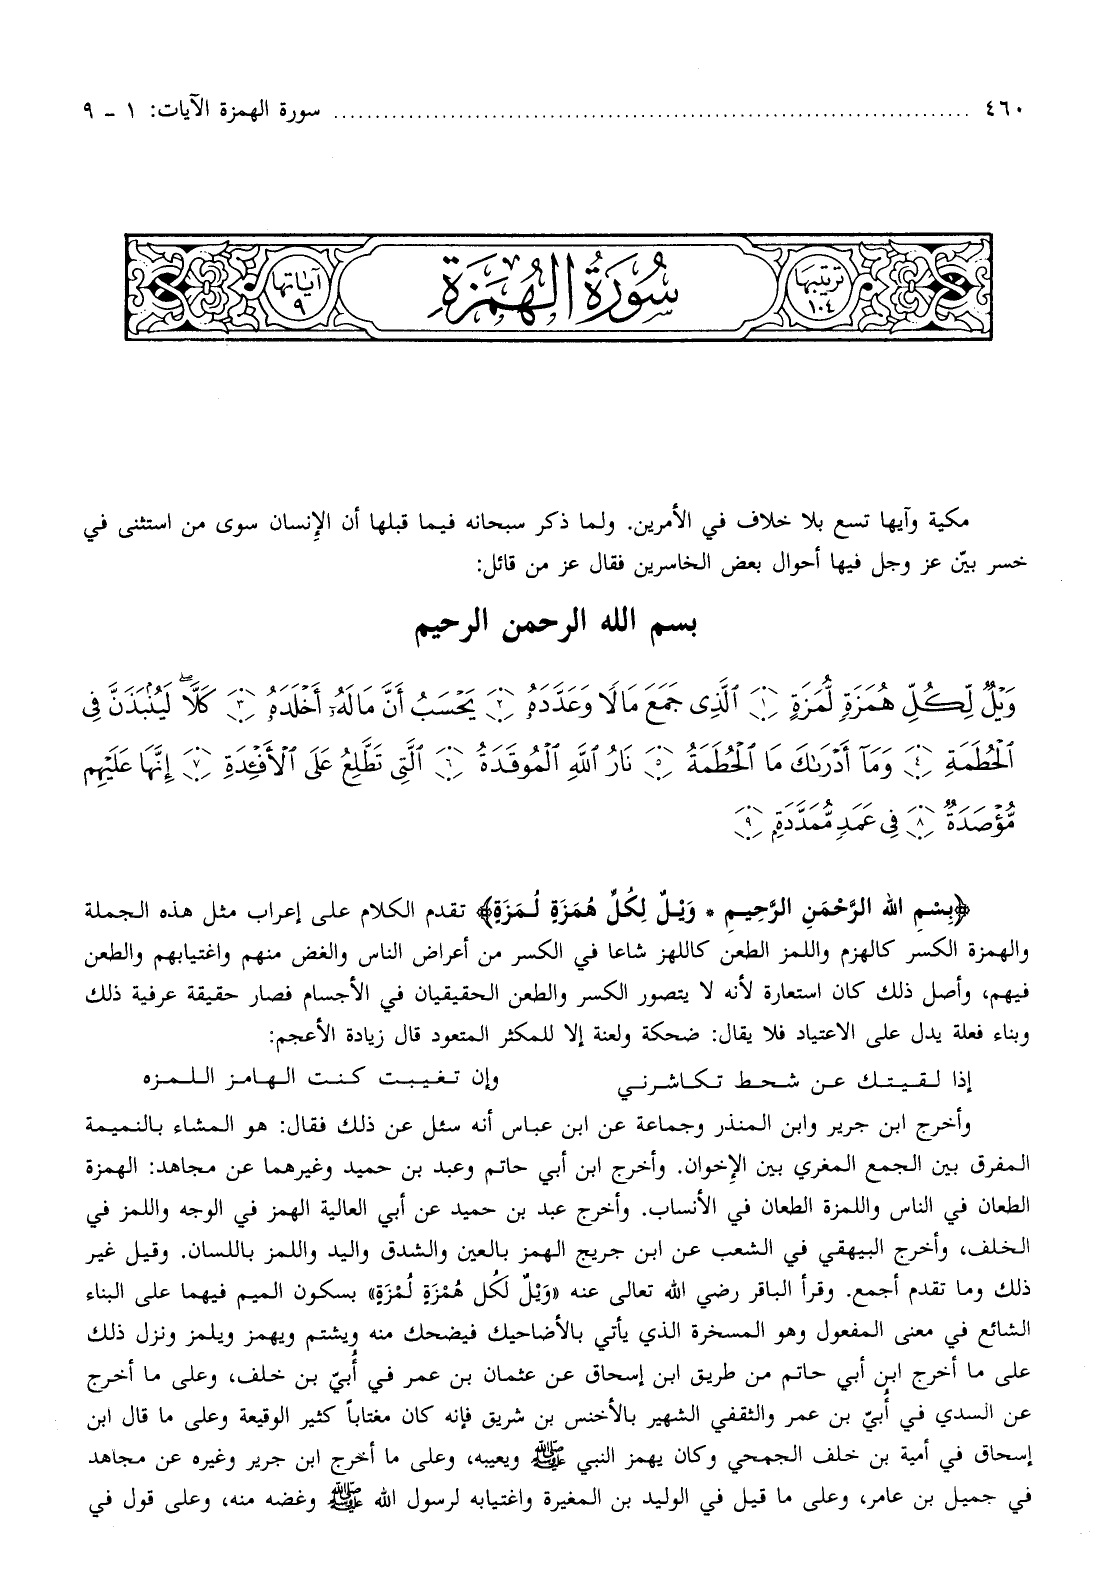 ٤٦٠ ........ سورة الهمزة الآيات: ١ - ٩
ترتيبها ١٠٤ سُورَةُ الهُمَزَةِ آياتها ٩
مكية وآيها تسع بلا خلاف في الأمرين. ولما ذكر سبحانه فيما قبلها أن الإنسان سوى من استثنى في
خسر بيّن عز وجل فيها أحوال بعض الخاسرين فقال عز من قائل:
بسم الله الرحمن الرحيم
وَيْلٌ لِّكُلِّ هُمَزَةٍ لُّمَزَةٍ ﴿١﴾ ٱلَّذِى جَمَعَ مَالًا وَعَدَّدَهُۥ ﴿٢﴾ يَحْسَبُ أَنَّ مَالَهُۥٓ أَخْلَدَهُۥ ﴿٣﴾ كَلَّا ۖ لَيُنۢبَذَنَّ فِى
ٱلْحُطَمَةِ ﴿٤﴾ وَمَآ أَدْرَىٰكَ مَا ٱلْحُطَمَةُ ﴿٥﴾ نَارُ ٱللَّهِ ٱلْمُوقَدَةُ ﴿٦﴾ ٱلَّتِى تَطَّلِعُ عَلَى ٱلْأَفْـِٔدَةِ ﴿٧﴾ إِنَّهَا عَلَيْهِم
مُّؤْصَدَةٌ ﴿٨﴾ فِى عَمَدٍ مُّمَدَّدَةٍۭ ﴿٩﴾
﴿بِسْمِ الله الرَّحْمَنِ الرَّحِيمِ * وَيْلٌ لِكُلِّ هُمَزَةٍ لُمَزَةٍ﴾ تقدم الكلام على إعراب مثل هذه الجملة
والهمزة الكسر كالهزم واللمز الطعن كاللهز شاعا في الكسر من أعراض الناس والغض منهم واغتيابهم والطعن
فيهم، وأصل ذلك كان استعارة لأنه لا يتصور الكسر والطعن الحقيقيان في الأجسام فصار حقيقة عرفية ذلك
وبناء فعلة يدل على الاعتياد فلا يقال: ضحكة ولعنة إلا للمكثر المتعود قال زيادة الأعجم:
إذا لقيتك عن شحط تكاشرني وإن تغيبت كنت الهامز اللمزه
وأخرج ابن جرير وابن المنذر وجماعة عن ابن عباس أنه سئل عن ذلك فقال: هو المشاء بالنميمة
المفرق بين الجمع المغري بين الإخوان. وأخرج ابن أبي حاتم وعبد بن حميد وغيرهما عن مجاهد: الهمزة
الطعان في الناس واللمزة الطعان في الأنساب. وأخرج عبد بن حميد عن أبي العالية الهمز في الوجه واللمز في
الخلف، وأخرج البيهقي في الشعب عن ابن جريج الهمز بالعين والشدق واليد واللمز باللسان. وقيل غير
ذلك وما تقدم أجمع. وقرأ الباقر رضي الله تعالى عنه «وَيْلٌ لَكُل هُمْزَةٍ لُمْزَةٍ» بسكون الميم فيهما على البناء
الشائع في معنى المفعول وهو المسخرة الذي يأتي بالأضاحيك فيضحك منه ويشتم ويهمز ويلمز ونزل ذلك
على ما أخرج ابن أبي حاتم من طريق ابن إسحاق عن عثمان بن عمر في أُبيّ بن خلف، وعلى ما أخرج
عن السدي في أُبيّ بن عمر والثقفي الشهير بالأخنس بن شريق فإنه كان مغتاباً كثير الوقيعة وعلى ما قال ابن
إسحاق في أمية بن خلف الجمحي وكان يهمز النبي ﷺ ويعيبه، وعلى ما أخرج ابن جرير وغيره عن مجاهد
في جميل بن عامر، وعلى ما قيل في الوليد بن المغيرة واغتيابه لرسول الله ﷺ وغضه منه، وعلى قول في